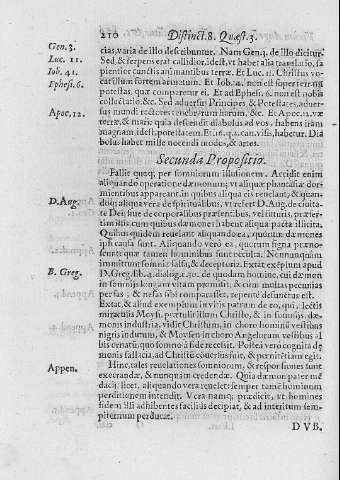 210 Distinct. 8. Quæst. 5.
Gen. 3.
Luc. 11.
Iob. 41.
Ephesi. 6.
Apoc. 12.
rias, varia de illo describuntur. Nam Gen. 3. de illo dicitur.
Sed & serpens erat callidior, idest, vt habet alia translatio, sa
pientior cunctis animantibus terræ. Et Luc. 11. Christus vo-
cat illum fortem armatum. Et Iob. 41. non est super terrã
potestas, quæ comparetur ei. Et ad Ephesi. 6. non est nobis
colluctatio, &c. Sed aduersus Principes, & Potestates, aduer-
sus mundi rectores tenebrarum harum, &c. Et Apoc. 12. væ
terræ, & mari: quia descendit diabolus ad vos, habens iram
magnam, idest, potestatem. Et in. q. 2. can. visis, habetur. Dia
bolus habet mille nocendi modos, & artes.
Secunda Propositio.
D. Aug.
B. Greg.
Appen.
Fallit quoq; per somniorum illusionem. Accidit enim
aliquando operatione dæmonum, vt aliquæ phantasiæ dor-
mientibus appareant, in quibus aliqua eis reuelant, & quan-
doq; aliqua vera de spiritalibus, vt refert D. Aug. de ciuita-
te Dei, siue de corporalibus præsentibus, vel futuris, præser-
tim illis, cum quibus dæmones habent aliqua pacta illicita.
Quibus quidem reuelant aliquando ea, quorum dæmones
ipsi causa sunt. Aliquando verò ea, quorum signa præno-
scunt quæ tamen hominibus sunt occulta. Nonnunquam
immittunt somnia falsa, & deceptoria. Extat exẽplum apud
D. Greg. lib. 4. dialog. c. 40. de quodam homine, cui dæmon
in somnijs longam vitam promisit, & cum multas pecunias
persas, & nefas sibi comparasset, repentè defunctus est.
Extat, & aliud exemplum in vitis patrum de eo, qui, lectis
miraculis Moysi, prætulit illum Christo, & in somnijs, dæ-
monis industria, vidit Christum, in choro hominũ vestibus
nigris indutum, & Moysen in choro Angelorum vestibus al
bis ornatũ, quo somno à fide recessit. Postea verò cognita dę
monis fallacia, ad Christũ conuersus fuit, & pœnitẽtiam egit.
Hinc, tales reuelationes somniorum, & responsiones sunt
execrandæ, & nunquam credendæ. Quia dæmon pater mẽ
dacij, licet, aliquando vera reuelet, semper tamẽ hominum
perditionem intendit. Vera namq; prædicit, vt homines
fidem illi adhibentes facilius decipiat, & ad interitum sem-
piternum perducat.
DVB.